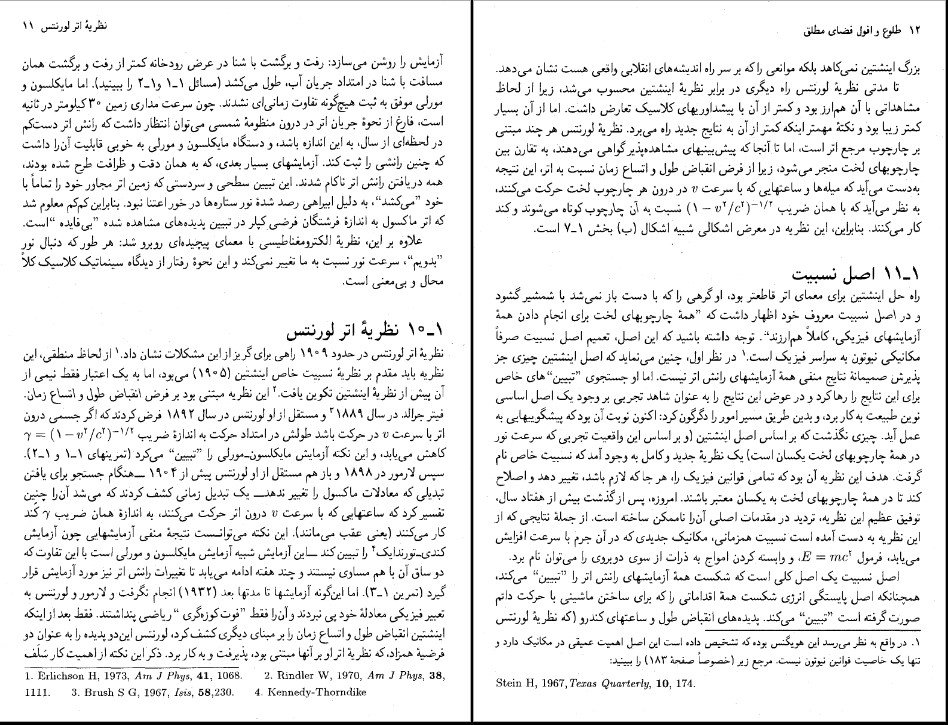 نظریهٔ اتر لورنتس ۱۱
آزمایش را روشن می‌سازد: رفت و برگشت با شنا در عرض رودخانه کمتر از رفت و برگشت همان
مسافت با شنا در امتداد جریان آب، طول می‌کشد (مسائل ۱ـ۱ و۱ـ۲ را ببینید). اما مایکلسون و
مورلی موفق به ثبت هیچ‌گونه تفاوت زمانی‌ای نشدند. چون سرعت مداری زمین ۳۰ کیلومتر در ثانیه
است، فارغ از نحوهٔ جریان اتر در درون منظومهٔ شمسی می‌توان انتظار داشت که رانش اتر دست‌کم
در لحظه‌ای از سال، به این اندازه باشد، و دستگاه مایکلسون و مورلی به خوبی قابلیت آن را داشت
که چنین رانشی را ثبت کند. آزمایشهای بسیار بعدی، که به همان دقت و ظرافت طرح شده بودند،
همه در یافتن رانش اتر ناکام شدند. این تبیین سطحی و سردستی که زمین اتر مجاور خود را تماماً با
خود ”می‌کشد“، به دلیل ابیراهی رصد شدهٔ نور ستاره‌ها در خور اعتنا نبود. بنابراین کم‌کم معلوم شد
که اتر ماکسول به اندازهٔ فرشتگان فرضی کپلر در تبیین پدیده‌های مشاهده شده ”بی‌فایده“ است.
علاوه بر این، نظریهٔ الکترومغناطیسی با معمای پیچیده‌ای روبرو شد: هر طور که دنبال نور
”بدویم“، سرعت نور نسبت به ما تغییر نمی‌کند و این نحوهٔ رفتار از دیدگاه سینماتیک کلاسیک کلاً
محال و بی‌معنی است.
۱ـ۱۰ نظریهٔ اتر لورنتس
نظریهٔ اتر لورنتس در حدود ۱۹۰۹ راهی برای گریز از این مشکلات نشان داد.۱ از لحاظ منطقی، این
نظریه باید مقدم بر نظریهٔ نسبیت خاص اینشتین (۱۹۰۵) می‌بود، اما به یک اعتبار فقط نیمی از
آن پیش از نظریهٔ اینشتین تکوین یافت.۲ این نظریه مبتنی بود بر فرض انقباض طول و اتساع زمان.
فیتز جرالد در سال ۱۸۸۹۳ و مستقل از او لورنتس در سال ۱۸۹۲ فرض کردند که اگر جسمی درون
اتر با سرعت v در حرکت باشد طولش در امتداد حرکت به اندازهٔ ضریب γ = (۱ − v²/c²)⁻¹/²
کاهش می‌یابد، و این نکته آزمایش مایکلسون‌ـ‌مورلی را ”تبیین“ می‌کرد (تمرینهای ۱ـ۱ و ۱ـ۲).
سپس لارمور در ۱۸۹۸ و باز هم مستقل از او لورنتس پیش از ۱۹۰۴ ـــ هنگام جستجو برای یافتن
تبدیلی که معادلات ماکسول را تغییر ندهد ـــ یک تبدیل زمانی کشف کردند که می‌شد آن را چنین
تفسیر کرد که ساعتهایی که با سرعت v درون اتر حرکت می‌کنند، به اندازهٔ همان ضریب γ کُند
کار می‌کنند (یعنی عقب می‌مانند). این نکته می‌توانست نتیجهٔ منفی آزمایشهایی چون آزمایش
کندی‌ـ‌تورندایک۴ را تبیین کند ـــ این آزمایش شبیه آزمایش مایکلسون و مورلی است با این تفاوت که
دو ساق آن با هم مساوی نیستند و چند هفته ادامه می‌یابد تا تغییرات رانش اتر نیز مورد آزمایش قرار
گیرد (تمرین ۱ـ۳). اما این‌گونه آزمایشها تا مدتها بعد (۱۹۳۲) انجام نگرفت و لارمور و لورنتس به
تعبیر فیزیکی معادلهٔ خود پی نبردند و آن را فقط ”فوت کوزه‌گری“ ریاضی پنداشتند. فقط بعد از اینکه
اینشتین انقباض طول و اتساع زمان را بر مبنای دیگری کشف کرد، لورنتس این دو پدیده را به عنوان دو
فرضیهٔ همزاد، که نظریهٔ اتر او بر آنها مبتنی بود، پذیرفت و به کار برد. ذکر این نکته از اهمیت کار سَلَف
1. Erlichson H, 1973, Am J Phys, 41, 1068. 2. Rindler W, 1970, Am J Phys, 38,
1111. 3. Brush S G, 1967, Isis, 58,230. 4. Kennedy-Thorndike
۱۲ طلوع و افول فضای مطلق
بزرگ اینشتین نمی‌کاهد بلکه موانعی را که بر سر راه اندیشه‌های انقلابی واقعی هست نشان می‌دهد.
تا مدتی نظریهٔ لورنتس راه دیگری در برابر نظریهٔ اینشتین محسوب می‌شد، زیرا از لحاظ
مشاهداتی با آن هم‌ارز بود و کمتر از آن با پیشداوریهای کلاسیک تعارض داشت. اما از آن بسیار
کمتر زیبا بود و نکتهٔ مهمتر اینکه کمتر از آن به نتایج جدید راه می‌برد. نظریهٔ لورنتس هر چند مبتنی
بر چارچوب مرجع اتر است، اما تا آنجا که پیش‌بینیهای مشاهده‌پذیر گواهی می‌دهند، به تقارن بین
چارچوبهای لخت منجر می‌شود، زیرا از فرض انقباض طول و اتساع زمان نسبت به اتر، این نتیجه
به‌دست می‌آید که میله‌ها و ساعتهایی که با سرعت v در درون هر چارچوب لخت حرکت می‌کنند،
به نظر می‌آید که با همان ضریب (۱ − v²/c²)⁻¹/² نسبت به آن چارچوب کوتاه می‌شوند و کند
کار می‌کنند. بنابراین، این نظریه در معرض اشکالی شبیه اشکال (ب) بخش ۱ـ۷ است.
۱ـ۱۱ اصل نسبیت
راه حل اینشتین برای معمای اتر قاطعتر بود، او گرهی را که با دست باز نمی‌شد با شمشیر گشود
و در اصل نسبیت معروف خود اظهار داشت که ”همهٔ چارچوبهای لخت برای انجام دادن همهٔ
آزمایشهای فیزیکی، کاملاً هم‌ارزند“. توجه داشته باشید که این اصل، تعمیم اصل نسبیت صرفاً
مکانیکی نیوتون به سراسر فیزیک است.۱ در نظر اول، چنین می‌نماید که اصل اینشتین چیزی جز
پذیرش صمیمانهٔ نتایج منفی همهٔ آزمایشهای رانش اتر نیست. اما او جستجوی ”تبیین“های خاص
برای این نتایج را رها کرد و در عوض این نتایج را به عنوان شاهد تجربی بر وجود یک اصل اساسی
نوین طبیعت به کار برد، و بدین طریق مسیر امور را دگرگون کرد: اکنون نوبت آن بود که پیشگوییهایی به
عمل آید. چیزی نگذشت که بر اساس اصل اینشتین (و بر اساس این واقعیت تجربی که سرعت نور
در همهٔ چارچوبهای لخت یکسان است) یک نظریهٔ جدید و کامل به وجود آمد که نسبیت خاص نام
گرفت. هدف این نظریه آن بود که تمامی قوانین فیزیک را، هر جا که لازم باشد، تغییر دهد و اصلاح
کند تا در همهٔ چارچوبهای لخت به یکسان معتبر باشند. امروزه، پس از گذشت بیش از هفتاد سال،
توفیق عظیم این نظریه، تردید در مقدمات اصلی آن را ناممکن ساخته است. از جملهٔ نتایجی که از
این نظریه به دست آمده است نسبیت همزمانی، مکانیک جدیدی که در آن جرم با سرعت افزایش
می‌یابد، فرمول E = mc²، و وابسته کردن امواج به ذرات از سوی دوبروی را می‌توان نام برد.
اصل نسبیت یک اصل کلی است که شکست همهٔ آزمایشهای رانش اتر را ”تبیین“ می‌کند،
همچنانکه اصل پایستگی انرژی شکست همهٔ اقداماتی را که برای ساختن ماشینی با حرکت دائم
صورت گرفته است ”تبیین“ می‌کند. پدیده‌های انقباض طول و ساعتهای کندرو (که نظریهٔ لورنتس
۱. در واقع به نظر می‌رسد این هویگنس بوده که تشخیص داده است این اصل اهمیت عمیقی در مکانیک دارد و
تنها یک خاصیت قوانین نیوتون نیست. مرجع زیر (خصوصاً صفحهٔ ۱۸۳) را ببینید:
Stein H, 1967,Texas Quarterly, 10, 174.